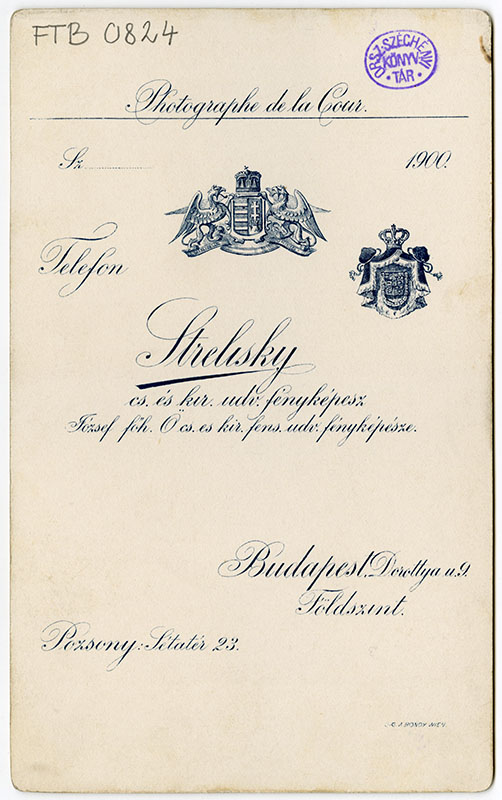 FTB 0824
ORSZ. SZÉCHÉNYI KÖNYVTÁR
Photographe de la Cour.
Sz. 1900.
Telefon
Strelisky
cs. és kir. udv. fényképesz
József főh. Ö cs. es kir. fens. udv. fényképésze.
Budapest. Dorottya u. 9.
Földszint.
Pozsony: Sétatér 23.